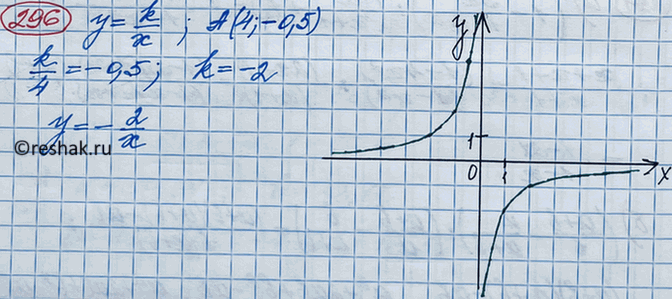 296 y = k/x ; A(4; -0,5)
k/4 = -0,5; k = -2
y = - 2/x
©reshak.ru
y
1
0 1 x